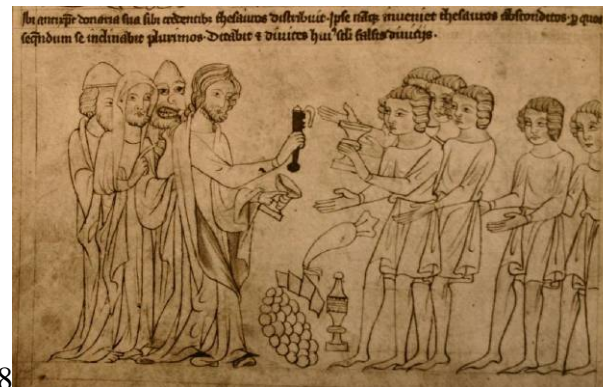 Ibi antixp̄c donaria sua sibi credentibꝫ thesauros distribuit. Ipse nāqꝫ inveniet thesauros absconditos. ꝑ quos
seqͥndum se inclinabit plurimos. Ditabit ⁊ divites huiꝰ sc̄li falsis divitijs.
8